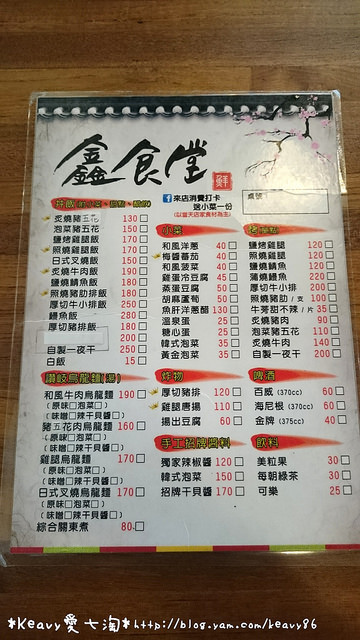 鑫食堂
鮮
來店消費打卡
送小菜一份
(以當天店家食材為主)
桌號
炙燒豬五花 130 □
泡菜豬五花 150 □
鹽烤雞腿飯 170 □
照燒雞腿飯 170 □
日式叉燒飯 150 □
炙燒牛肉飯 190 □
鹽燒鯖魚飯 180 □
照燒豬肋排飯 180 □
厚切牛小排飯 250 □
鰻魚飯 280 □
厚切豬排飯 180 □
200 □
自製一夜干 250 □
白飯 15 □
讚岐烏龍麵(湯)
和風牛肉烏龍麵 190 □
(原味□泡菜□)
(味噌□辣干貝醬□)
豬五花肉烏龍麵 160 □
(原味□泡菜□)
(味噌□辣干貝醬□)
雞腿烏龍麵 170 □
(原味□泡菜□)
(味噌□辣干貝醬□)
日式叉燒烏龍麵 170 □
(原味□泡菜□)
(味噌□辣干貝醬□)
綜合關東煮 80 □
小菜
和風洋蔥 40 □
每醬番茄 40 □
和風菠菜 40 □
雞蛋冷豆腐 45 □
蒸蛋豆腐 50 □
胡麻蘆筍 50 □
魚肝洋蔥醋 130 □
溫泉蛋 25 □
糖心蛋 25 □
韓式泡菜 35 □
黃金泡菜 35 □
炸物
厚切豬排 120 □
雞腿唐揚 110 □
揚出豆腐 60 □
手工招牌醬料
獨家辣椒醬 120 □
韓式泡菜 150 □
招牌干貝醬 170 □
烤單點
鹽烤雞腿 120 □
照燒雞腿 120 □
鹽燒鯖魚 120 □
蒲燒鰻魚 220 □
厚切牛小排 200 □
照燒豬肋/支 100 □
牛蒡甜不辣/片 35 □
炙燒豬肉 90 □
泡菜豬五花 110 □
炙燒牛肉 140 □
自製一夜干 200 □
啤酒
百威 (370cc) 60 □
海尼根 (370cc) 60 □
金牌 (375cc) 40 □
飲料
美粒果 30 □
每朝綠茶 30 □
可樂 25 □
*Keavy愛七淘*http://blog.yam.com/keavy86